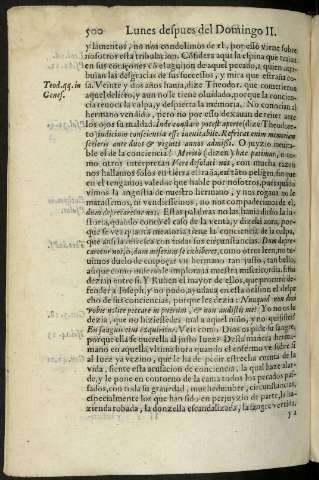 500 Lunes despues del Domingo II.
y lamentos, no nos condolimos de el, por esso viene sobre
nosotros esta tribulacion. Cõsidera aqui la espina que traian
en sus coraçones cõ el aguijon de aquel pecado, a quien atri-
buian las desgracias de sus sucessos, y mira que estraña co-
Teod. qq. in Genes.
sa. Veinte y dos años hauia, dize Theodor. que cometieron
aquel delicto, y aun no le tiene oluidado, porque la concien-
cia renoua la culpa, y despierta la memoria. No conocian al
hermano vendido, pero no por esso dexauan de traer ante
los ojos su maldad.
to iudicium conscientiæ esse ineuitabile. Refricat enim memoriam
sceleris ante duos & viginti annos admissi. O juyzio ineuita-
ble el de la conciencia! Merito (dizen) hæc patimur, no
con otro interprete. Veis desolati nos, con mucha razon
nos hallamos solos en tierra estraña, en tãto peligro, sin que
en el tengamos valedor que hable por nosotros, pues quãdo
vimos la angustia de nuestro hermano, y nos rogaua no le
matassemos, ni vendiessemos, no nos compadecimos de el,
dum deprecaretur nos. Estas palabras no las hauia dicho la hi-
storia, quando conto el caso de la venta, y dizelas aora, por-
que se vea quanta memoria tiene la conciencia de la culpa,
que aun la refresca con todas sus circunstancias. Dum depre-
caretur nos, ò, dum miserum se exhiberet, como otros leen, no tu-
uimos duelo de
aunque como misero le imploraua nuestra misericordia. Esto
dezian entre si. Y Ruben el mayor de ellos, que procurò de-
fender a Ioseph, y no pudo, ayudaua en esta ocasion al despe-
cho de sus conciencias, porque les dezia: Nunquid non dixi
vobis nolite peccare in puerum, & non audistis me? Yo no os le
dezia, que no hiziessedes mal a aquel niño, y no quisistes?
En sanguis eius exquiritur. Veis como Dios os pide su sangre,
porque ella se querella al justo Iuez? Dessa manera herma-
no en aquella vltima hora quando el enfermo ve sobre si
al Iuez ya vezino, que le ha de pedir estrecha cuenta de la
vida, siente esta acusacion de conciencia, la qual haze alar-
de, y le pone en contorno de la cama todos los pecados pas-
sados, con toda su grauedad, muchedumbre, circunstancias,
especialmente los que han sido en perjuyzio de parte, la ha-
zienda robada, la donzella escandalizada, la sangre vertida,
y a